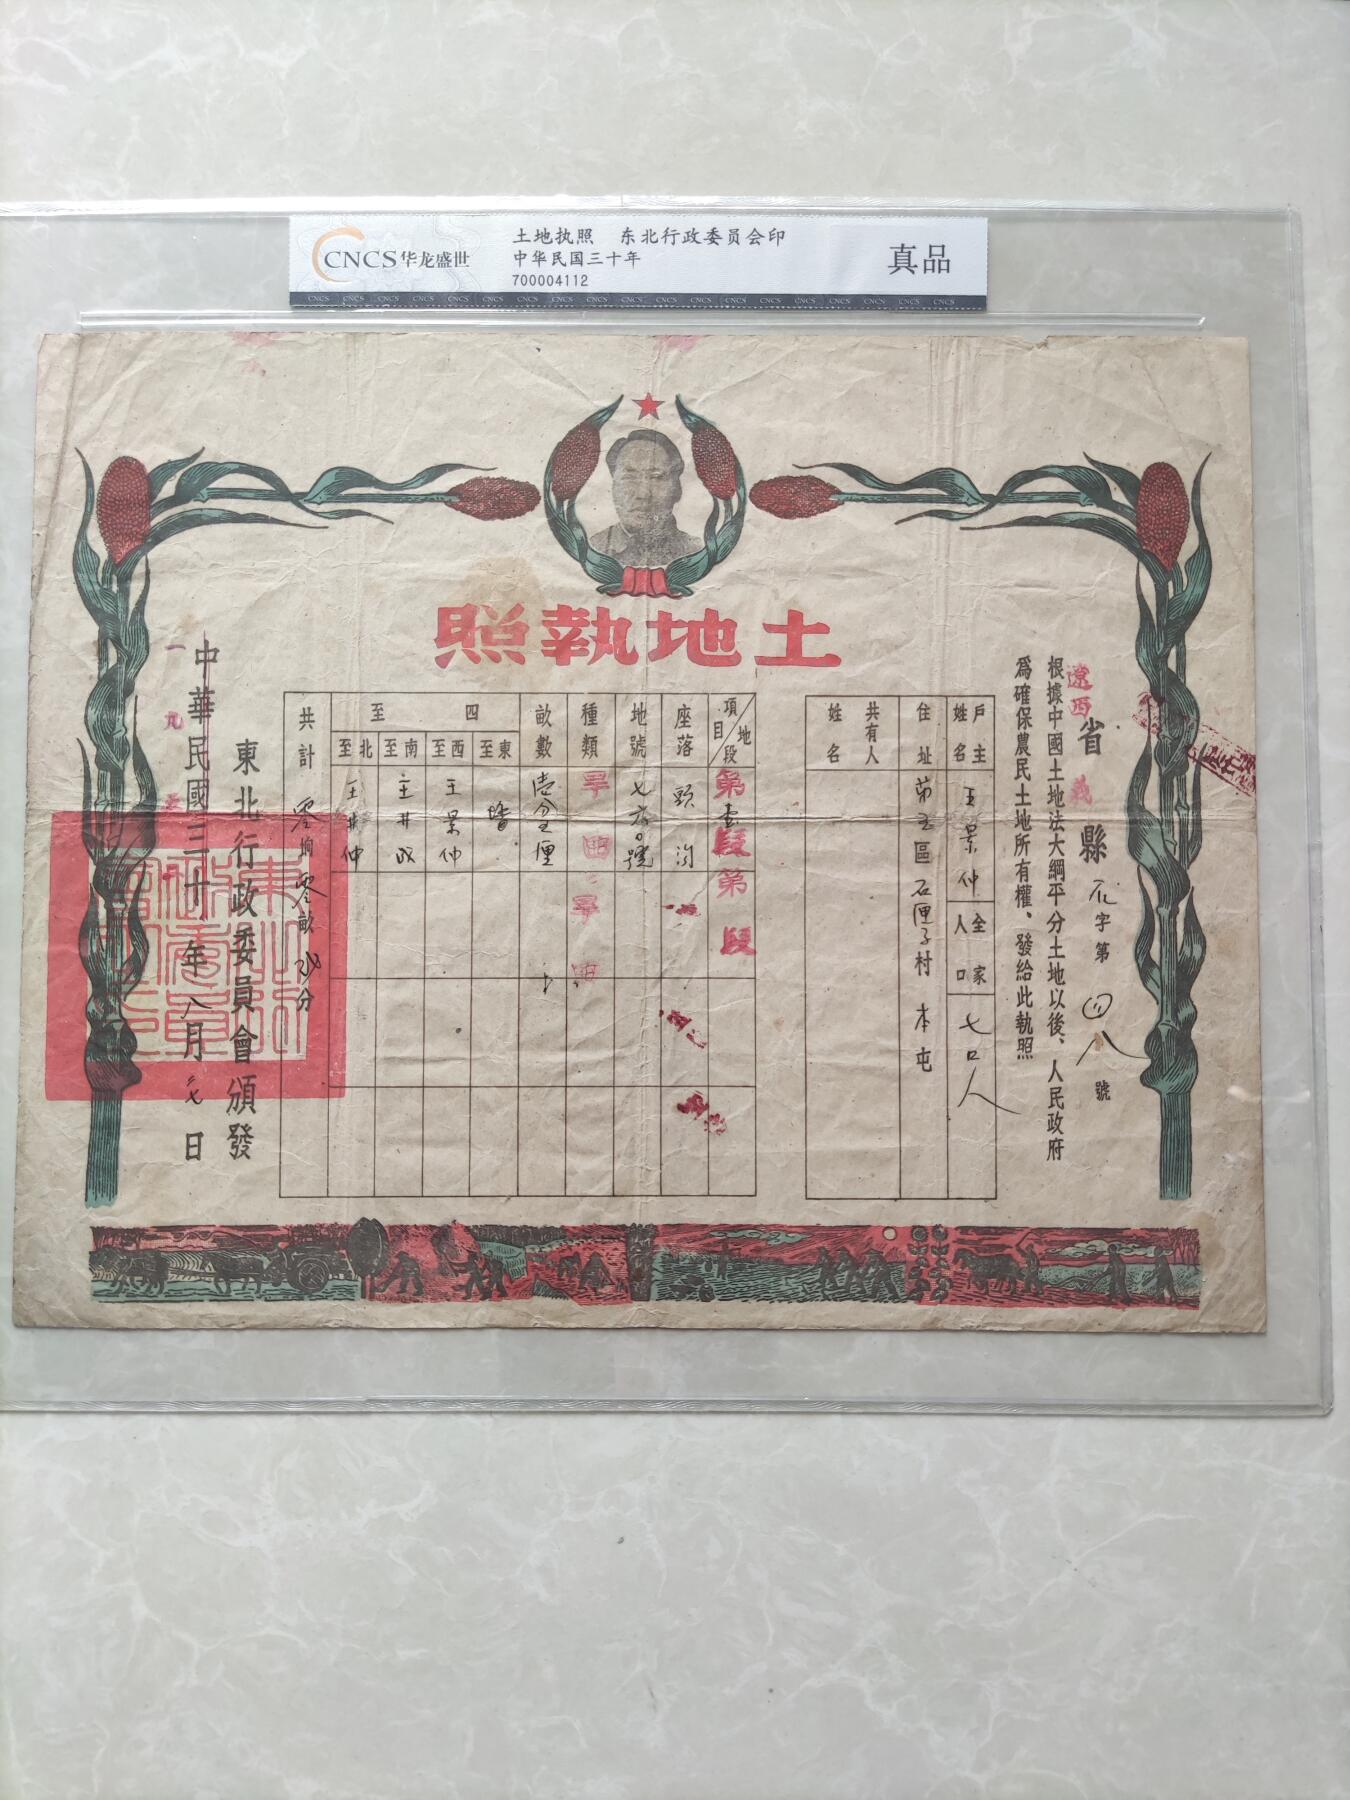 CNCS华龙盛世
土地执照 东北行政委员会印
中华民国三十年
700004112
真品
土地執照
遼西省義縣 字第四八號
根據中國土地法大綱平分土地以後、人民政府
爲確保農民土地所有權、發給此執照
戶主姓名 王景仲 全家人口 七口人
住址 第五區石匣子村本屯
共有人姓名
項目 地段 第壹段 第 段
座落 頭沟
地號 七六〇號
種類 旱田 旱田
畝數 壹分五厘
四至
東至 墻
西至 王景仲
南至 王井成
北至 王井仲
共計 零垧零畝 分
東北行政委員會頒發
中華民國三十 年八月 日
一九五